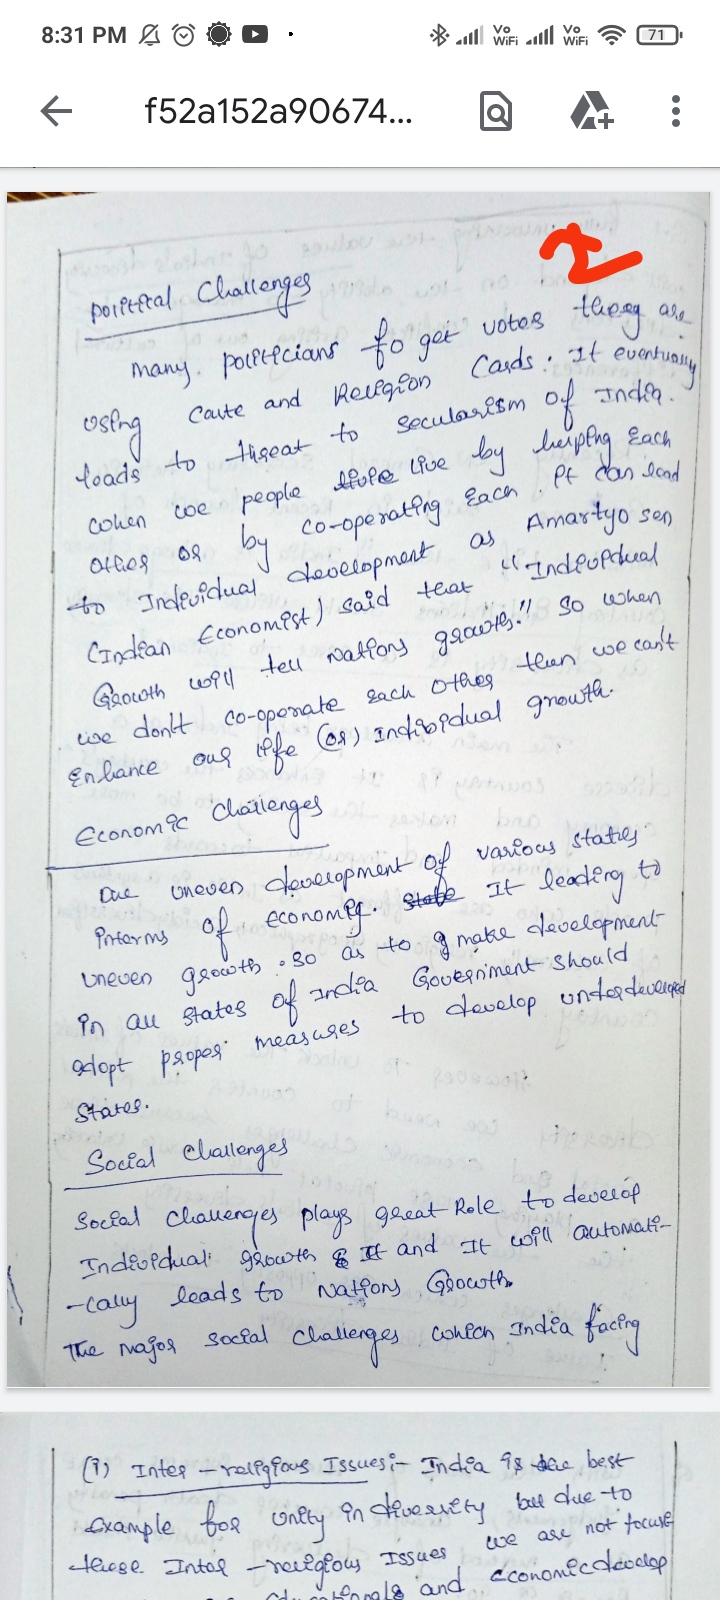 8:31 PM
Vo WiFi Vo WiFi 71
f52a152a90674...
2
Political Challenges
many. politicians to get votes they are
using Caste and Religion Cards. It eventually
leads to threat to secularism of India.
when we people live by helping Each
other or by co-operating Each. It can lead
to Individual development as Amartyo sen
(Indian Economist) said that "Individual
Growth will tell Nations growth." So when
we don't co-operate Each other then we can't
Enhance our life (or) Individual growth.
Economic Challenges
Due uneven development of various states
interms of economy. It leading to
uneven growth. So as to make development
in all states of India Government should
adopt proper measures to develop underdeveloped
States.
Social Challenges
Social Challenges plays great Role to develop
Individual growth and It will automati-
-cally leads to Nations Growth
The Major Social Challenges which India facing
(i) Inter-religious Issues:- India is the best
Example for Unity in diversity but due to
these Inter-religious Issues we are not focuse
and economic develop